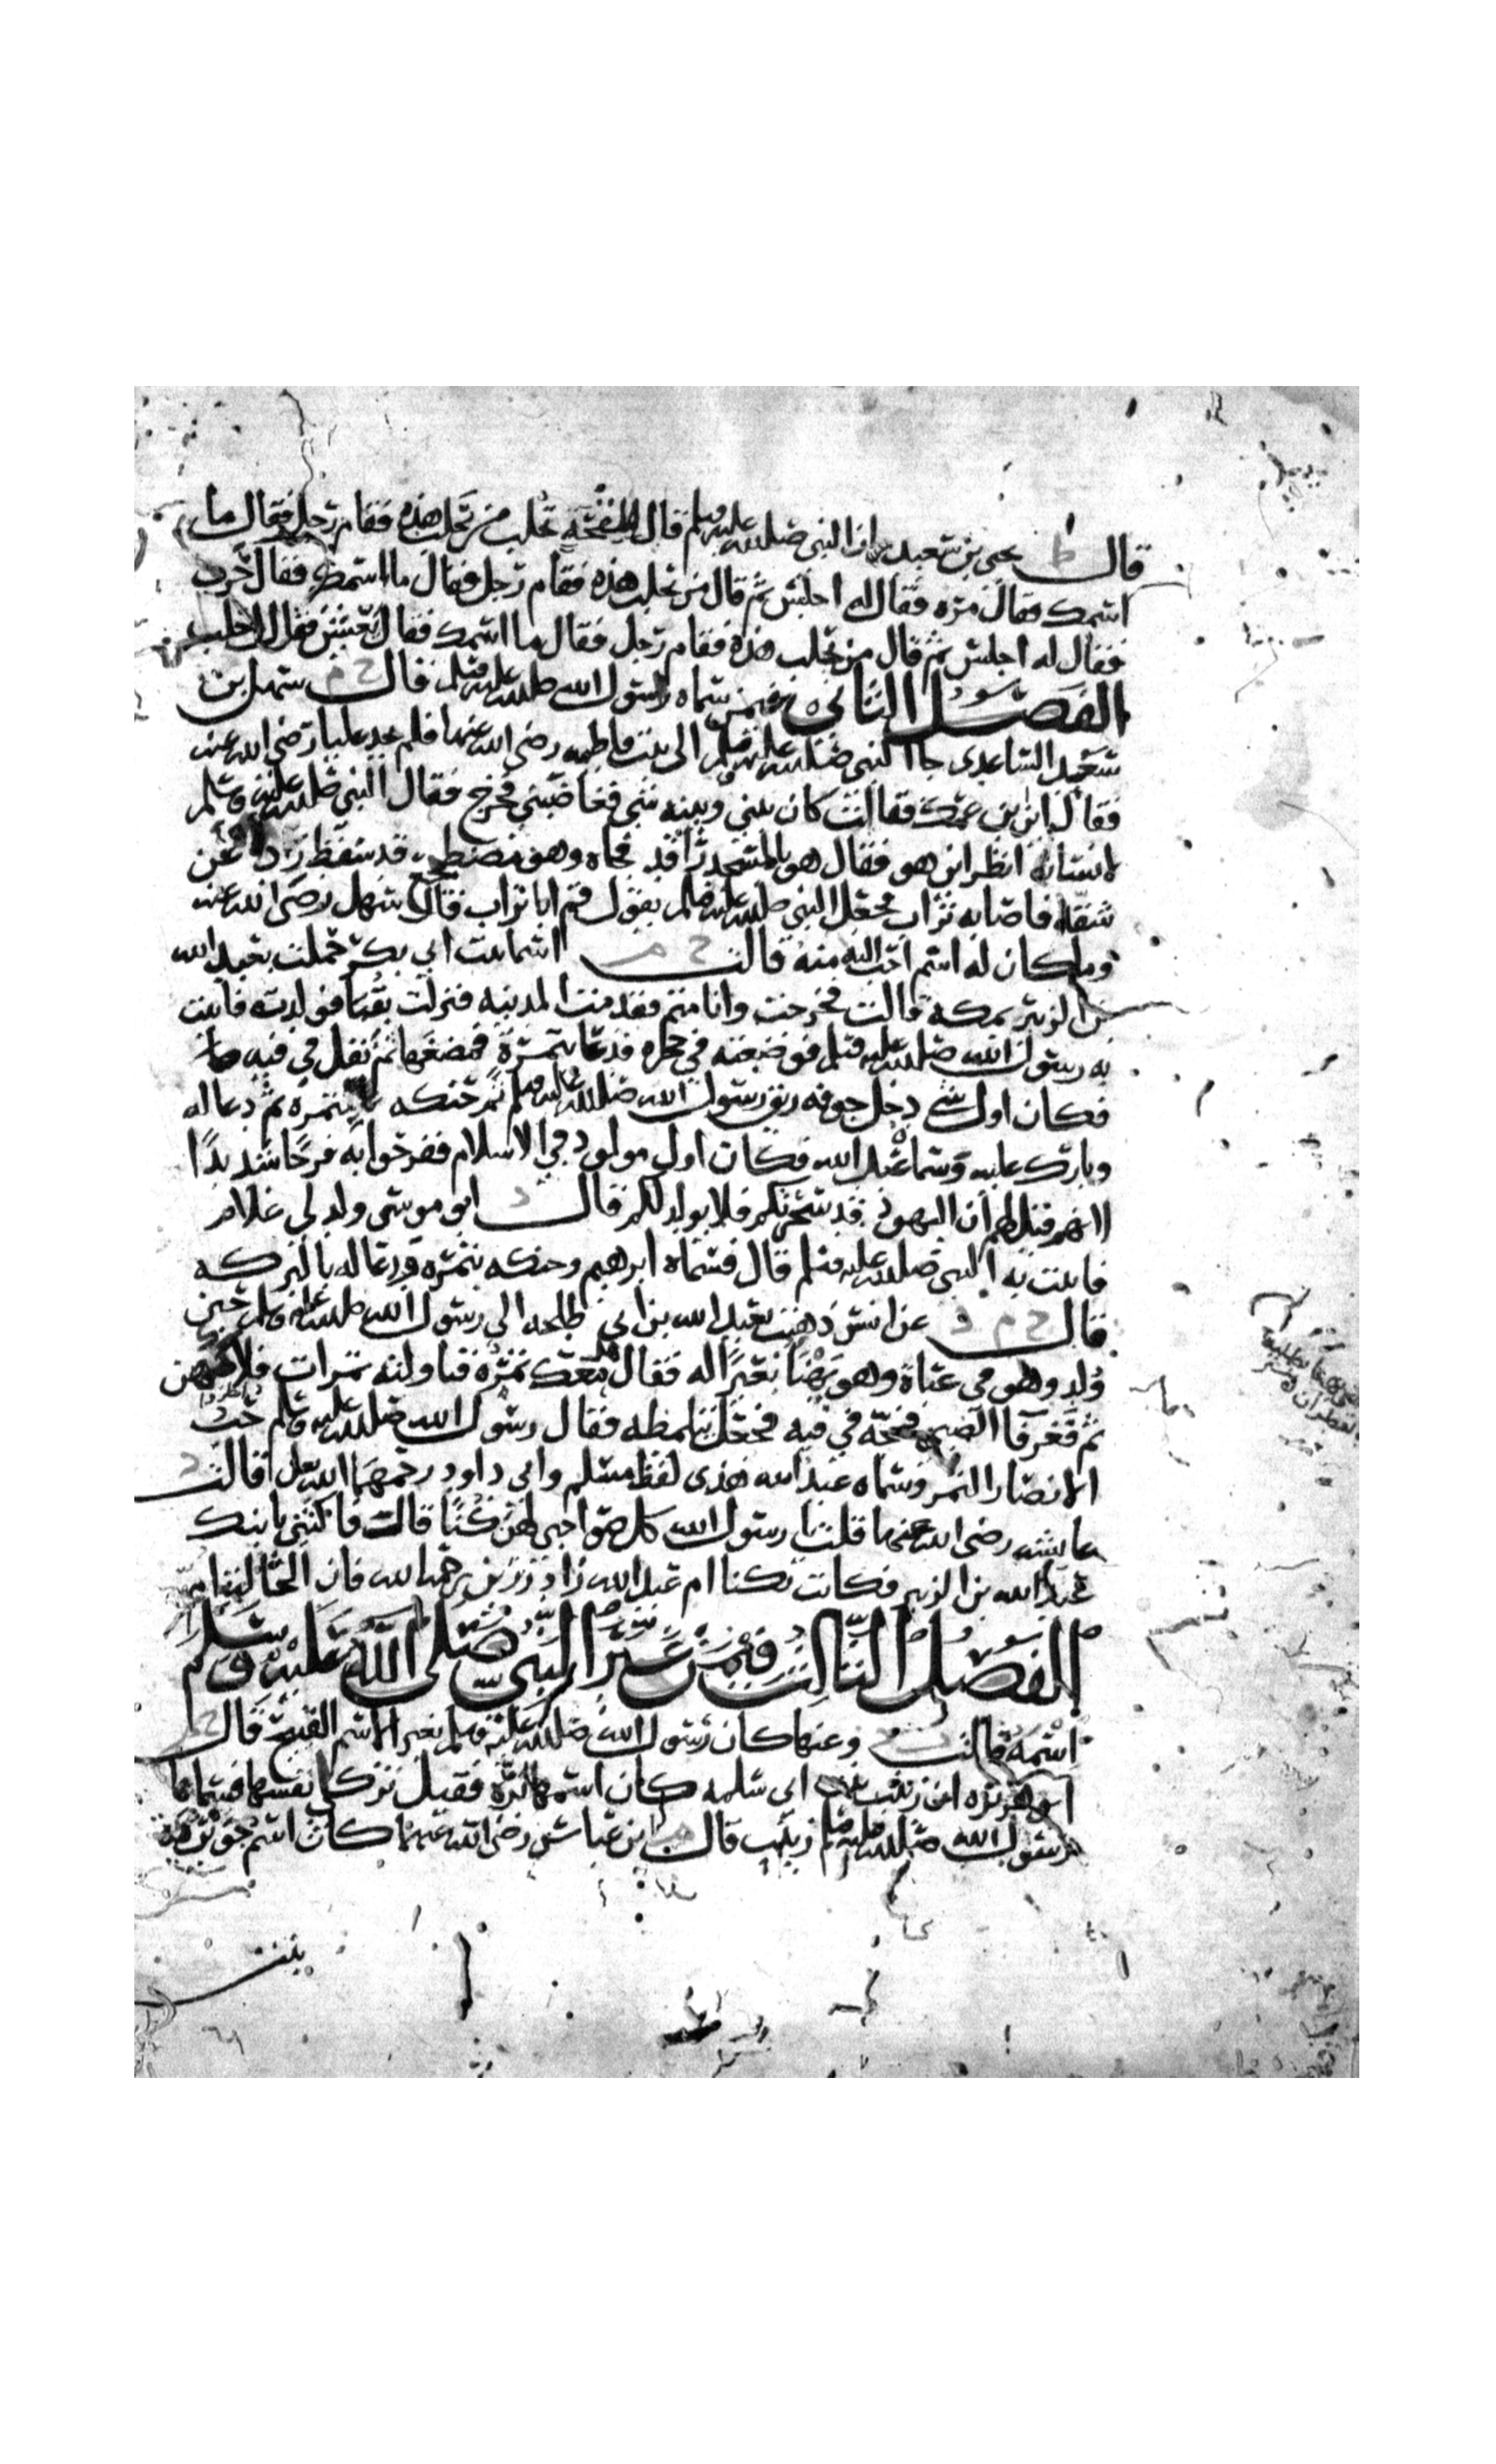 قال ط يحيى بن سعيد ان النبي صلى الله عليه وسلم قال للقحة تحلب من يحلب هذه فقام رجل فقال ما
اسمك فقال مرة فقال له اجلس ثم قال من يحلب هذه فقام رجل فقال ما اسمك فقال حرب
فقال له اجلس ثم قال من يحلب هذه فقام رجل فقال ما اسمك فقال يعيش فقال احلب
الفصل الثاني فيمن سماه رسول الله صلى الله عليه وسلم قال خ م سهل بن
سعد الساعدي جا النبي صلى الله عليه وسلم الى بيت فاطمه رضي الله عنها فلم يجد عليا رضي الله عنه
فقال اين بن عمك فقالت كان بيني وبينه شي فغاضبني فخرج فقال النبي صلى الله عليه وسلم
لانسان انظر اين هو فقال هو بالمسجد راقد فجاه وهو مضطجع قد سقط رداه عن
شقه فاصابه تراب فجعل النبي صلى الله عليه وسلم يقول قم ابا تراب قال سهل رضي الله عنه
وما كان له اسم احب اليه منه قالت خ م اسما بنت ابي بكر حملت بعبد الله
بن الزبير بمكة قالت فخرجت وانا متم فقدمت المدينه فنزلت بقبا فولدته فاتيت
به رسول الله صلى الله عليه وسلم فوضعته في حجره فدعا بتمرة فمضغها ثم تفل في فيه
فكان اول شي دخل جوفه ريق رسول الله صلى الله عليه وسلم ثم حنكه بتمره ثم دعا له
وبارك عليه وسماه عبد الله فكان اول مولود في الاسلام ففرحوا به فرحا شديدا
لانهم قيل لهم ان اليهود قد سحرتكم فلا يولد لكم قال ابو موسى ولد لي غلام
فاتيت به النبي صلى الله عليه وسلم قال فسماه ابرهيم وحنكه بتمره ودعا له بالبركه
قال خ م د عن انس ذهبت بعبد الله بن ابي طلحه الى رسول الله صلى الله عليه وسلم حين
ولد وهو في عباة وهو يهنا بعيرا له فقال هل معك تمره فناولته تمرات فلاكهن
ثم فغر فا الصبي فمجه في فيه فجعل يتلمظه فقال رسول الله صلى الله عليه وسلم حب
الانصار التمر وسماه عبد الله هذي لفظ مسلم وابي داود رحمهما الله تعالى قالت د
عايشه رضي الله عنها قلت يا رسول الله كل صواحبي لهن كنا قالت فاكتني بابنك
عبد الله بن الزبير فكانت تكنا ام عبد الله زاد رزين رحمه الله فان الخالة ام
الفصل الثالث فيمن غير النبي صلى الله عليه وسلم
اسمه قالت وعنها كان رسول الله صلى الله عليه وسلم يغير الاسم القبيح قال خ م
ابو هريره ان زينب بنت ابي سلمه كان اسمها برة فقيل تزكي نفسها فسماها
رسول الله صلى الله عليه وسلم زينب قال م ابن عباس رضي الله عنهما كان اسم جويريه
بنت